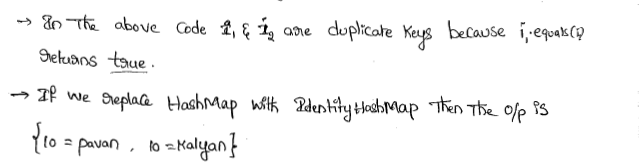 → In the above code i1 & i2 are duplicate keys because i1.equals(i)
returns true.
→ If we replace HashMap with IdentityHashMap then the o/p is
{10 = pavan, 10 = Kalyan}